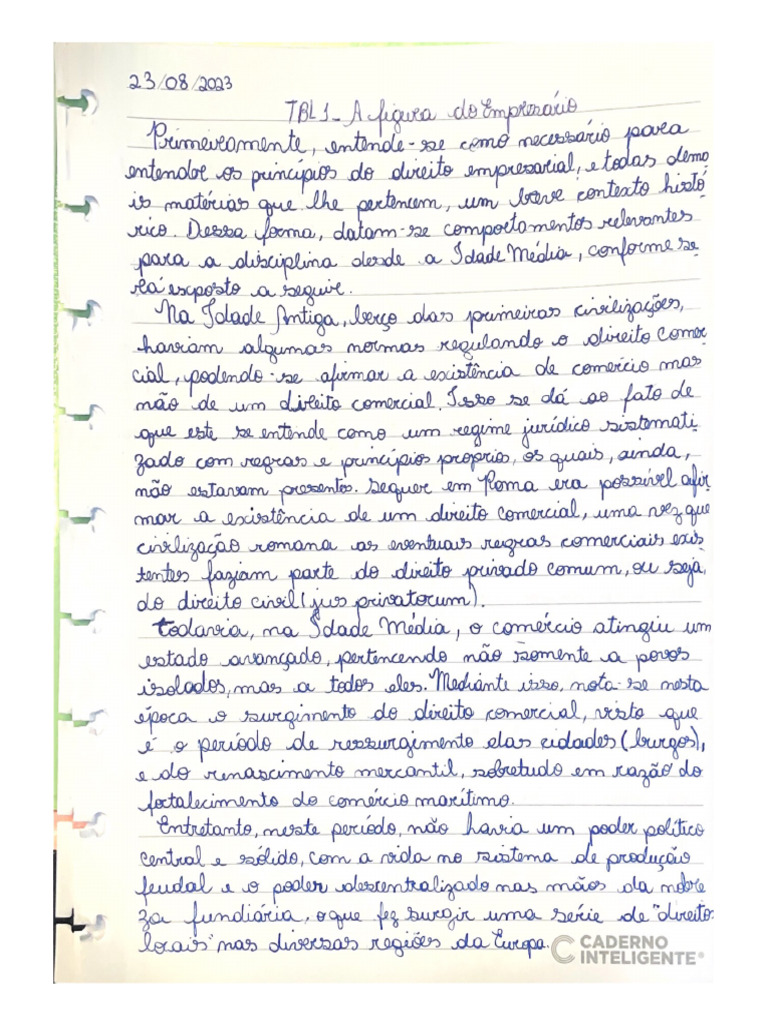 23/08/2023
TBL 1 - A figura do Empresário
Primeiramente, entende-se como necessário para
entender os princípios do direito empresarial, e todas dema
is matérias que lhe pertencem, um breve contexto histó
rico. Dessa forma, datam-se comportamentos relevantes
para a disciplina desde a Idade Média, conforme se
rá exposto a seguir.
Na Idade Antiga, berço das primeiras civilizações,
haviam algumas normas regulando o direito comer
cial, podendo-se afirmar a existência de comércio mas
não de um direito comercial. Isso se dá ao fato de
que este se entende como um regime jurídico sistemati
zado com regras e princípios proprios, os quais, ainda,
não estavam presentes. Sequer em Roma era possível afir
mar a existência de um direito comercial, uma vez que
civilização romana as eventuais regras comerciais exis
tentes faziam parte do direito privado comum, ou seja,
do direito civil (jus privatorum).
Todavia, na Idade Média, o comércio atingiu um
estado avançado, pertencendo não somente a povos
isolados, mas a todos eles. Mediante isso, nota-se nesta
época o surgimento do direito comercial, visto que
é o período de ressurgimento das cidades (burgos),
e do renascimento mercantil, sobretudo em razão do
fortalecimento do comércio marítimo.
Entretanto, neste período, não havia um poder político
central e sólido, com a vida no sistema de produção
feudal e o poder descentralizado nas mãos da nobre
za fundiária, o que fez surgir uma série de "direito
locais" nas diversas regiões da Europa.
CADERNO
INTELIGENTE®